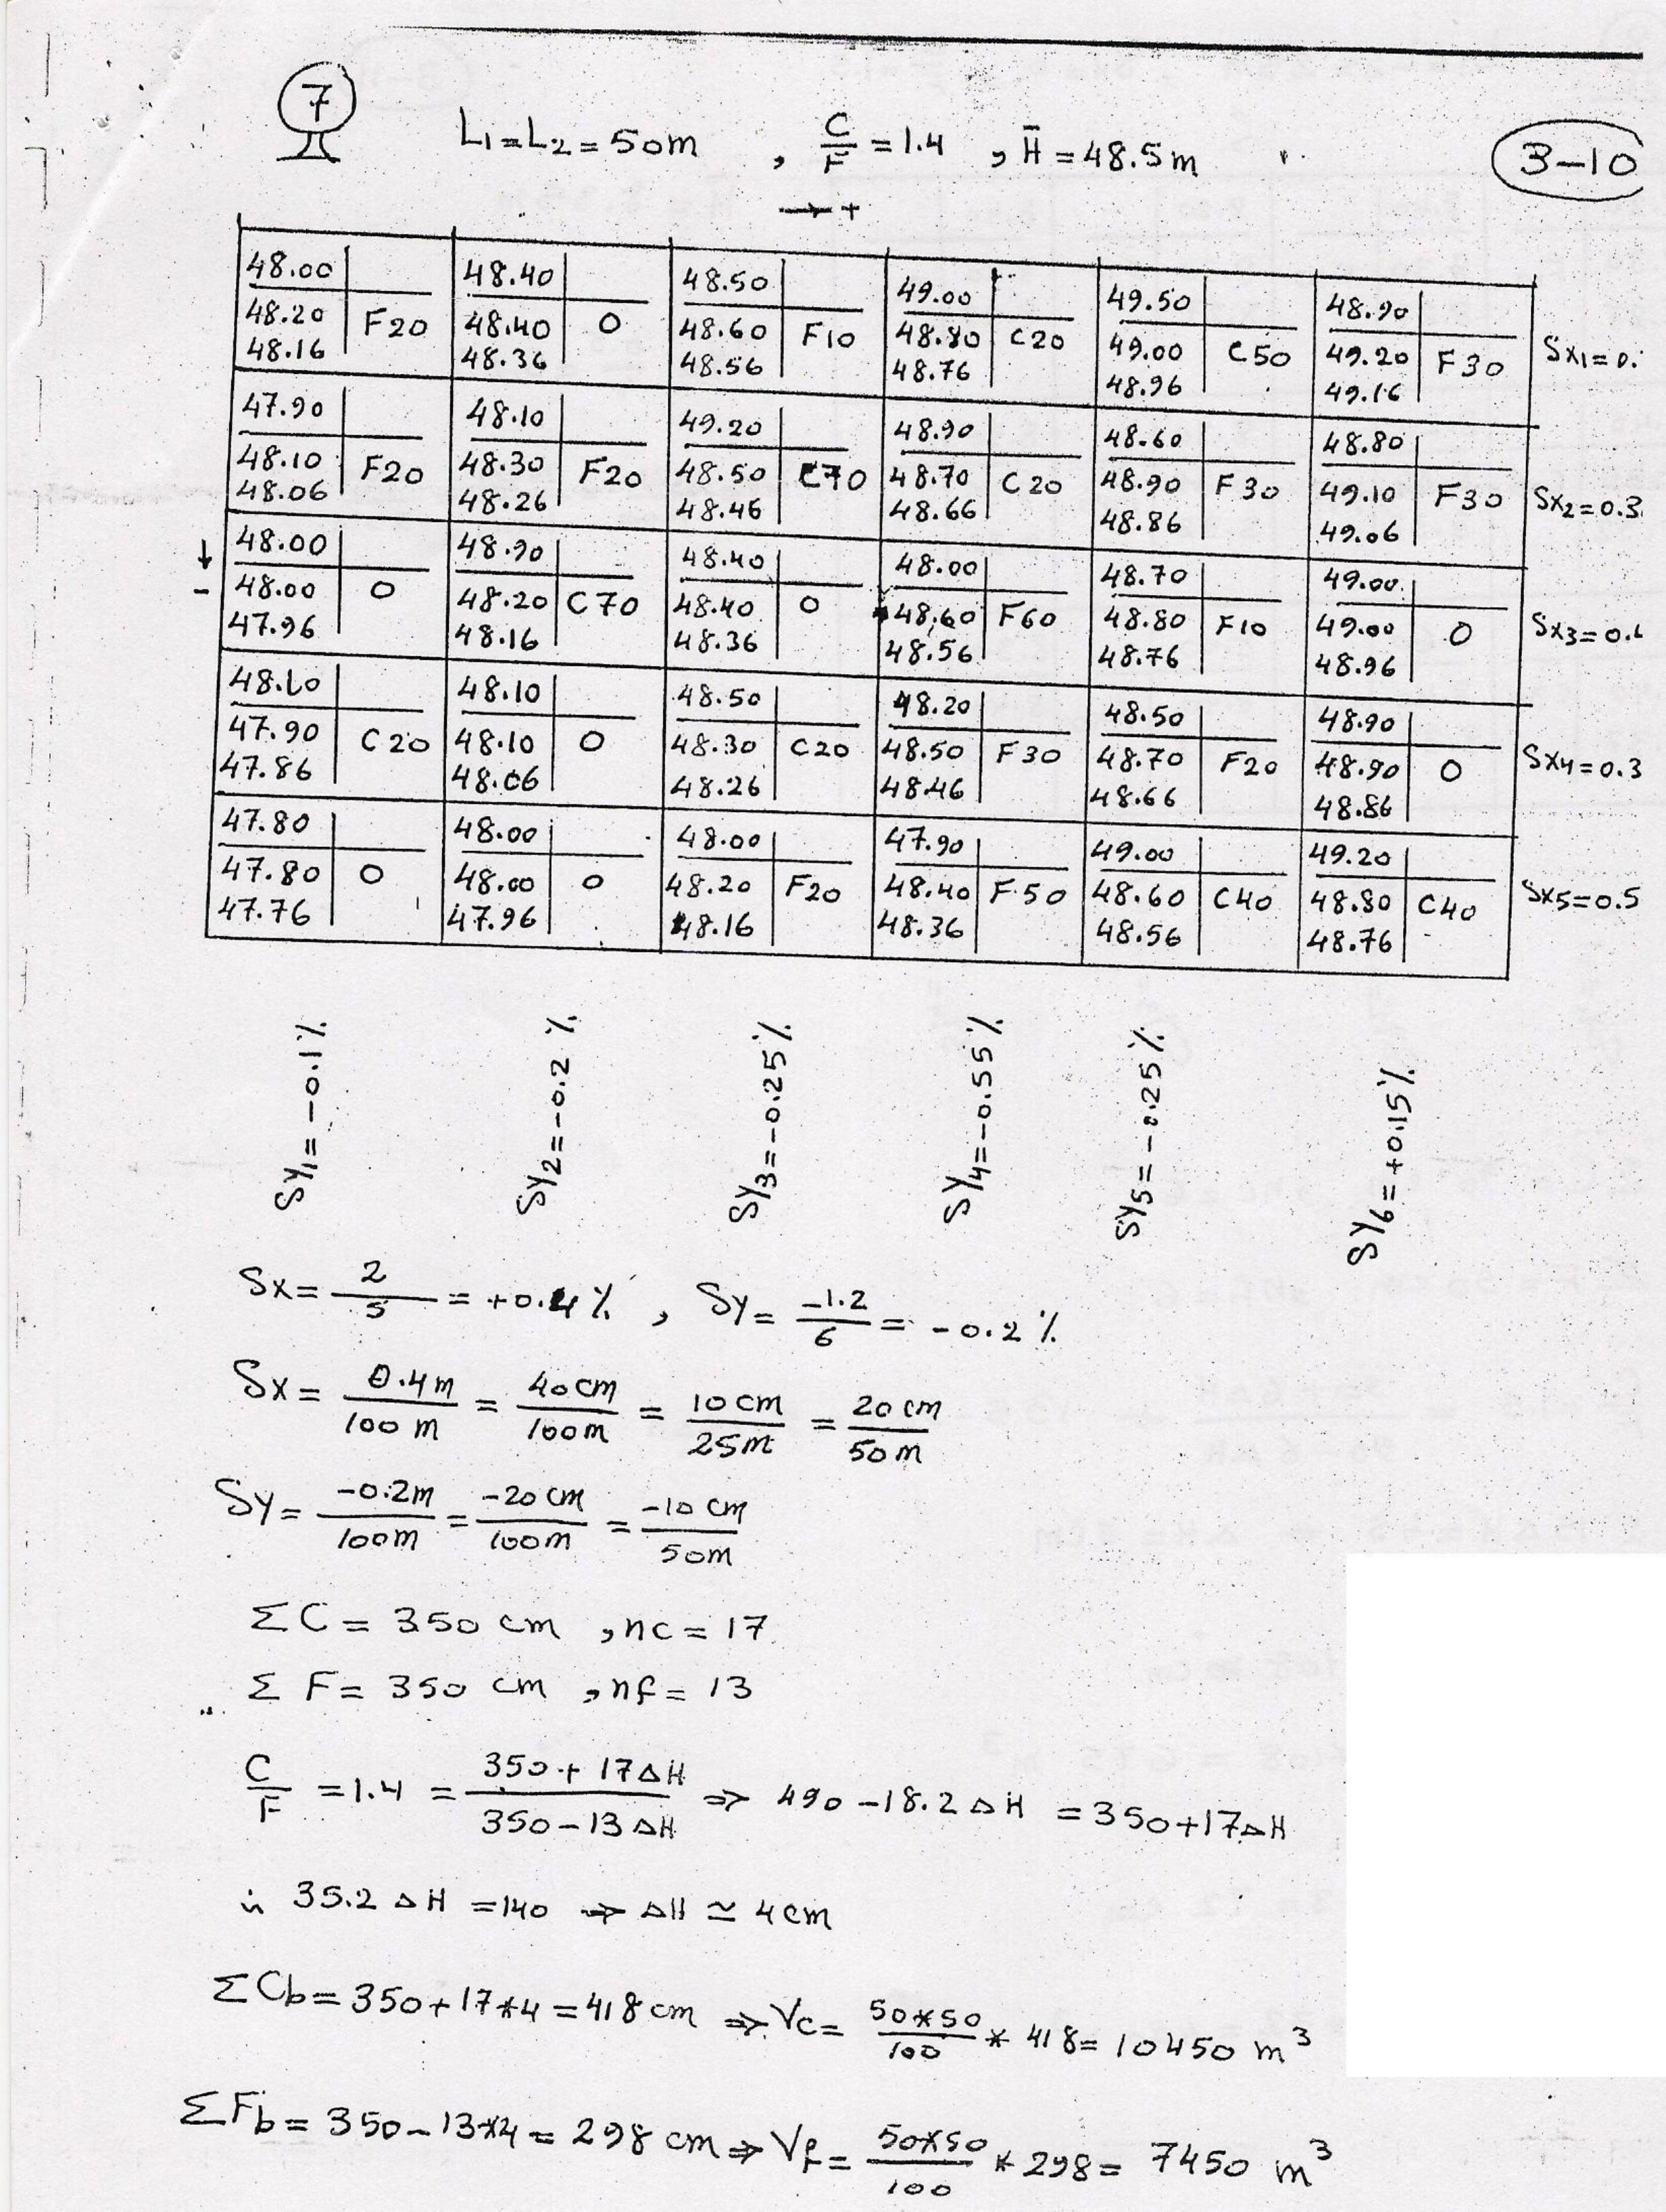 7
L1=L2=50m , C/F=1.4 , H̄=48.5m
3-10
→+
48.00 | 48.40 | 48.50 | 49.00 | 49.50 | 48.90
48.20 F20 | 48.40 0 | 48.60 F10 | 48.80 C20 | 49.00 C50 | 49.20 F30 | Sx1=0.
48.16 | 48.36 | 48.56 | 48.76 | 48.96 | 49.16
47.90 | 48.10 | 49.20 | 48.90 | 48.60 | 48.80
48.10 F20 | 48.30 F20 | 48.50 C70 | 48.70 C20 | 48.90 F30 | 49.10 F30 | Sx2=0.3
48.06 | 48.26 | 48.46 | 48.66 | 48.86 | 49.06
↓ 48.00 | 48.90 | 48.40 | 48.00 | 48.70 | 49.00
- 48.00 0 | 48.20 C70 | 48.40 0 | 48.60 F60 | 48.80 F10 | 49.00 0 | Sx3=0.
47.96 | 48.16 | 48.36 | 48.56 | 48.76 | 48.96
48.10 | 48.10 | 48.50 | 48.20 | 48.50 | 48.90
47.90 C20 | 48.10 0 | 48.30 C20 | 48.50 F30 | 48.70 F20 | 48.90 0 | Sx4=0.3
47.86 | 48.06 | 48.26 | 48.46 | 48.66 | 48.86
47.80 | 48.00 | 48.00 | 47.90 | 49.00 | 49.20
47.80 0 | 48.00 0 | 48.20 F20 | 48.40 F50 | 48.60 C40 | 48.80 C40 | Sx5=0.5
47.76 | 47.96 | 48.16 | 48.36 | 48.56 | 48.76
Sy1=-0.1%
Sy2=-0.2%
Sy3=-0.25%
Sy4=-0.55%
Sy5=-0.25%
Sy6=+0.15%
Sx= 2/5 = +0.4% , Sy= -1.2/6 = -0.2%
Sx= 0.4m/100m = 40cm/100m = 10cm/25m = 20cm/50m
Sy= -0.2m/100m = -20cm/100m = -10cm/50m
ΣC= 350 cm , nc= 17
ΣF= 350 cm , nf= 13
C/F =1.4 = 350+17ΔH/350-13ΔH ⇒ 490-18.2ΔH =350+17ΔH
∴ 35.2ΔH =140 ⇒ ΔH ≃ 4cm
ΣCb=350+17*4=418cm ⇒ Vc= 50*50/100 * 418= 10450 m³
ΣFb=350-13*4= 298 cm ⇒ VF= 50*50/100 * 298= 7450 m³